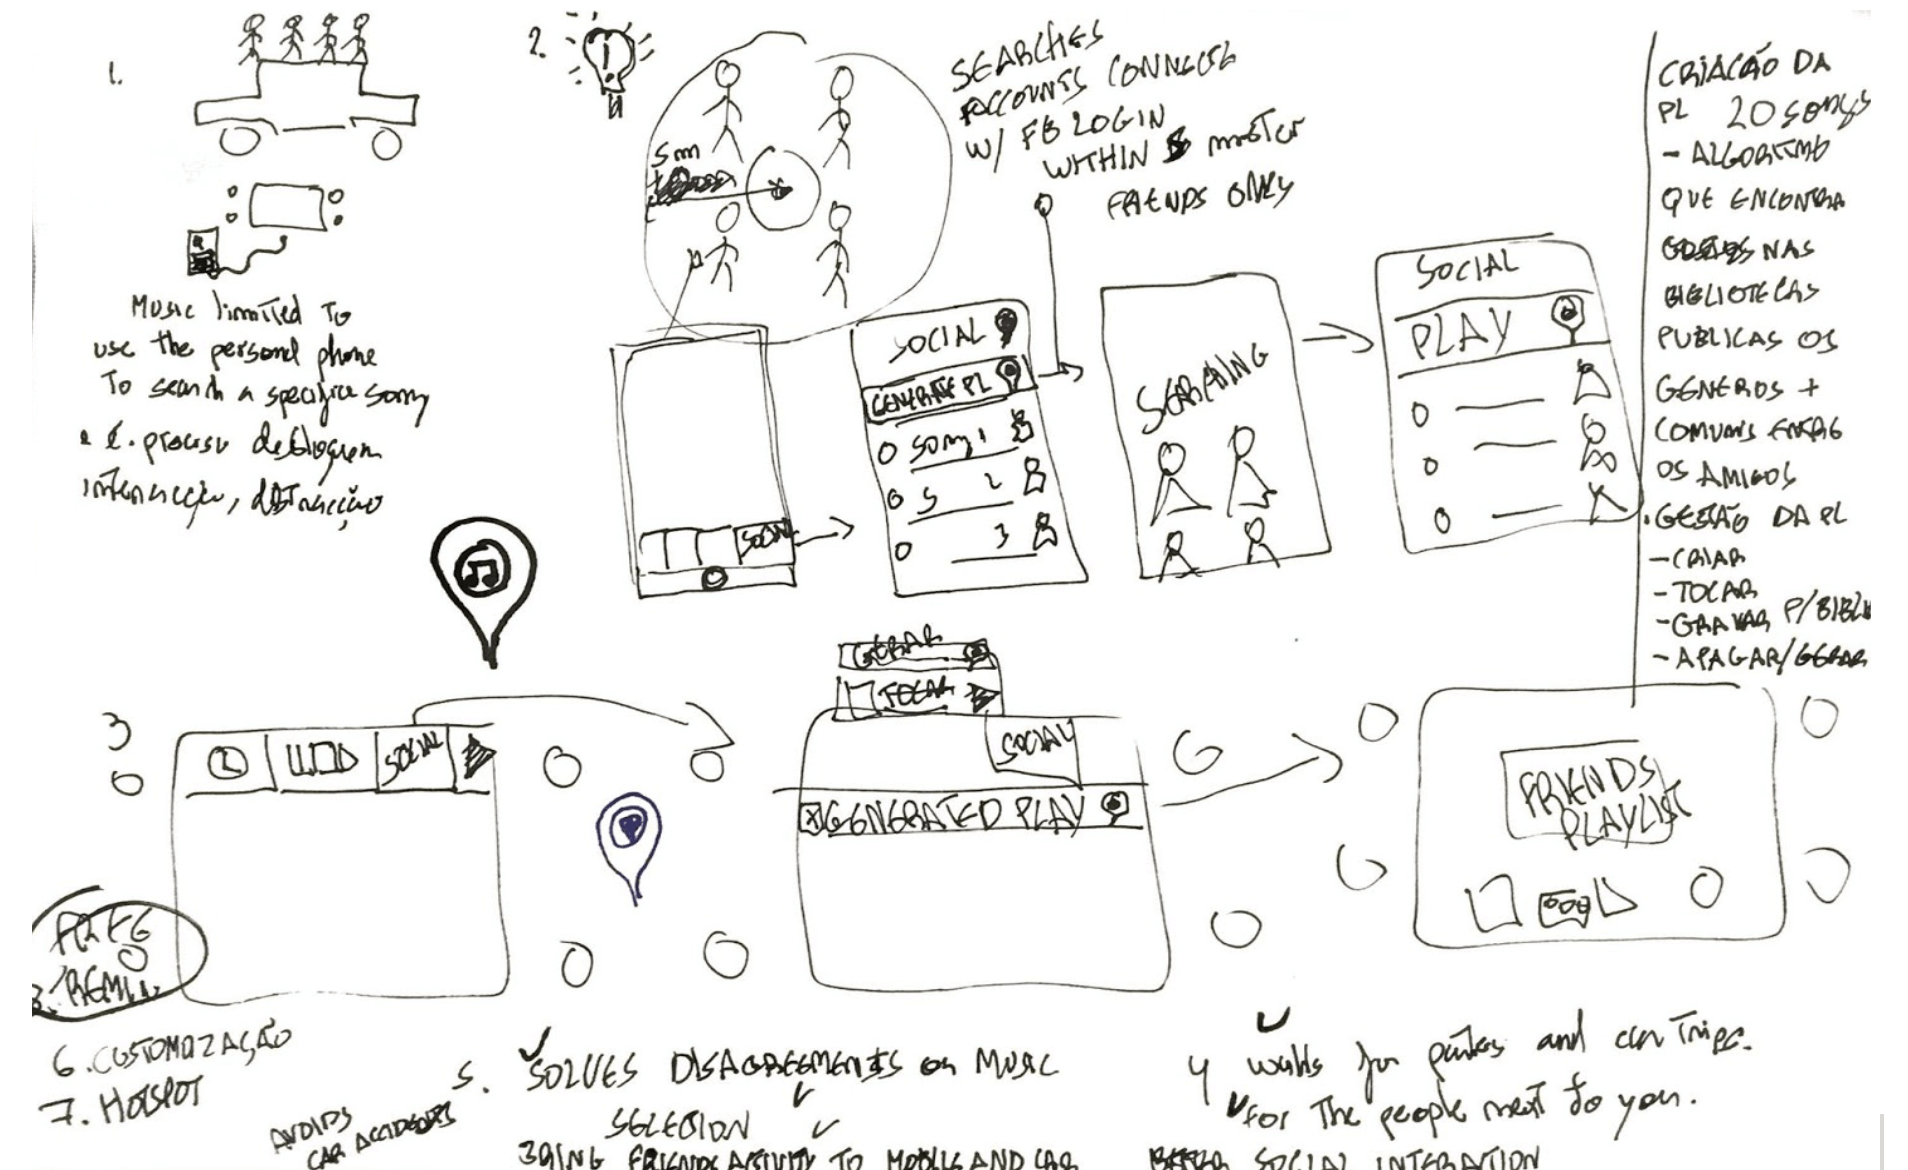 1.
Music limited To
use the personal phone
To search a specific song
e. processo desbloquem
interacção, distracção
2.
5m
SEARCHES
ACCOUNTS CONNECTED
W/ FB LOGIN
WITHIN 5 meter
FRIENDS ONLY
SOCIAL
SOCIAL
GENERATE PL
song 1
S 2
3
SEARCHING
SOCIAL
PLAY
CRIAÇÃO DA
PL 20 songs
- ALGORITMO
QUE ENCONTRA
NAS
BIBLIOTECAS
PUBLICAS OS
GÉNEROS +
COMUNS ENTRE
OS AMIGOS
. GESTÃO DA PL
- CRIAR
- TOCAR
- GRAVAR P/BIBLI
- APAGAR/GERAR
3
SOCIAL
GERAR
TOCAR
SOCIAL
GENERATED PLAY
FRIENDS
PLAYLIST
6. CUSTOMIZAÇÃO
7. HOTSPOT
AVOIDS
CAR ACCIDENTS
5. SOLVES DISAGREEMENTS on MUSIC
SELECTION
BRING FRIENDS ACTIVITY TO MOBILE AND CAR
4 works for parties and car Trips.
For The people next to you.
SOCIAL INTERACTION